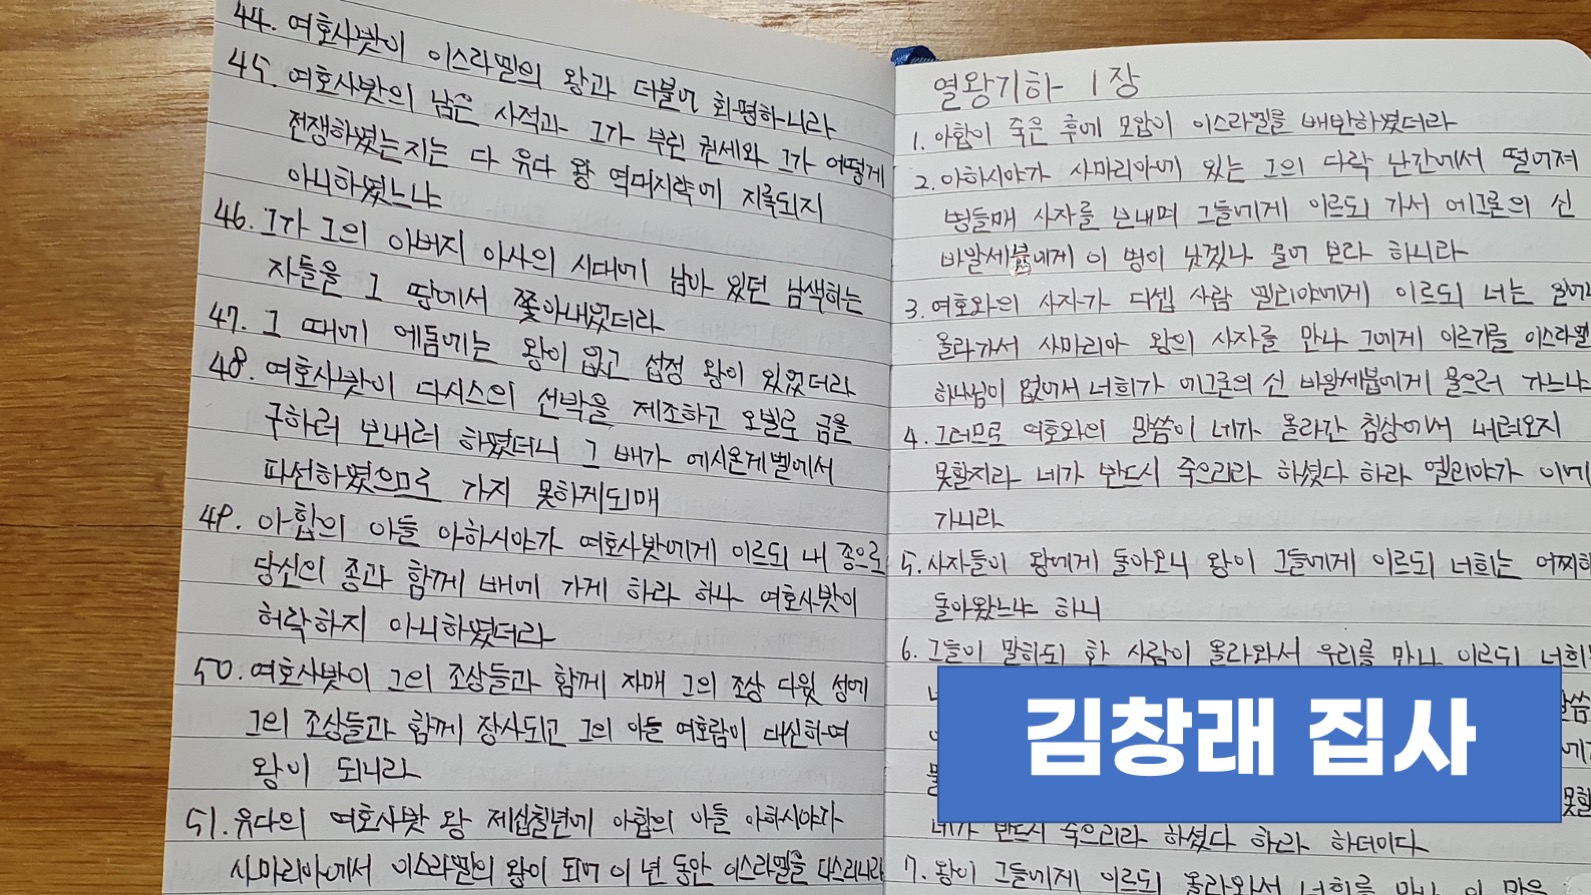 44. 여호사밧이 이스라엘의 왕과 더불어 화평하니라
45. 여호사밧의 남은 사적과 그가 부린 권세와 그가 어떻게
전쟁하였는지는 다 유다 왕 역대지략에 기록되지
아니하였느냐
46. 그가 그의 아버지 아사의 시대에 남아 있던 남색하는
자들을 그 땅에서 쫓아내었더라
47. 그 때에 에돔에는 왕이 없고 섭정 왕이 있었더라
48. 여호사밧이 다시스의 선박을 제조하고 오빌로 금을
구하러 보내려 하였더니 그 배가 에시온게벨에서
파선하였으므로 가지 못하게되매
49. 아합의 아들 아하시야가 여호사밧에게 이르되 내 종으로
당신의 종과 함께 배에 가게 하라 하나 여호사밧이
허락하지 아니하였더라
50. 여호사밧이 그의 조상들과 함께 자매 그의 조상 다윗 성에
그의 조상들과 함께 장사되고 그의 아들 여호람이 대신하여
왕이 되니라
51. 유다의 여호사밧 왕 제십칠년에 아합의 아들 아하시야가
사마리아에서 이스라엘의 왕이 되어 이 년 동안 이스라엘을 다스리니라
열왕기하 1장
1. 아합이 죽은 후에 모압이 이스라엘을 배반하였더라
2. 아하시야가 사마리아에 있는 그의 다락 난간에서 떨어져
병들매 사자를 보내며 그들에게 이르되 가서 에그론의 신
바알세붑에게 이 병이 낫겠나 물어 보라 하니라
3. 여호와의 사자가 디셉 사람 엘리야에게 이르되 너는 일어나
올라가서 사마리아 왕의 사자를 만나 그에게 이르기를 이스라엘
하나님이 없어서 너희가 에그론의 신 바알세붑에게 물으러 가느냐
4. 그러므로 여호와의 말씀이 네가 올라간 침상에서 내려오지
못할지라 네가 반드시 죽으리라 하셨다 하라 엘리야가 이에
가니라
5. 사자들이 왕에게 돌아오니 왕이 그들에게 이르되 너희는 어찌하
돌아왔느냐 하니
6. 그들이 말하되 한 사람이 올라와서 우리를 만나 이르되 너희
김창래 집사
네가 반드시 죽으리라 하셨다 하라 하더이다
7. 왕이 그들에게 이르되 올라와서 너희를 만나 이 말을